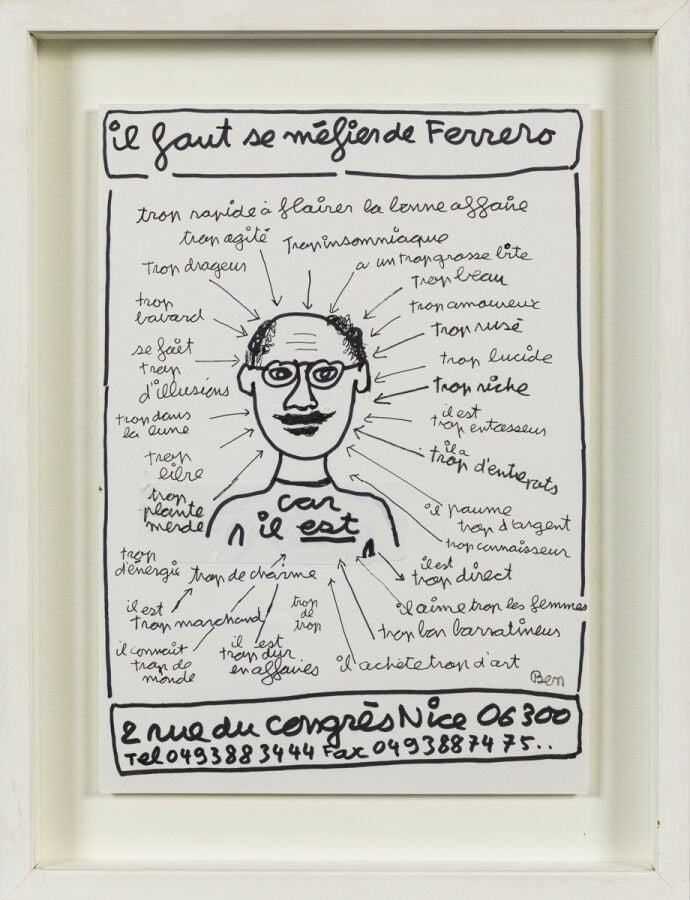 il faut se méfier de Ferrero
trop rapide à flairer la bonne affaire
trop agité
trop insomniaque
trop drageur
a un trop grosse bite
trop beau
trop
bavard
trop amoureux
trop rusé
se fait
trop
d'illusions
trop lucide
trop riche
trop dans
la lune
il est
trop entasseur
trop
libre
il a
trop d'entrepots
trop
plante
merde
car
il est
il paume
trop d'argent
trop connaisseur
trop
d'énergie
trop de charme
il est
trop direct
il est
trop marchand
trop
de
trop
il aime trop les femmes
trop bon barratineur
il connait
trop de
monde
il est
trop dur
en affaires
il achète trop d'art
Ben
2 rue du Congrès Nice 06300
Tel 0493883444 Fax 0493887475..